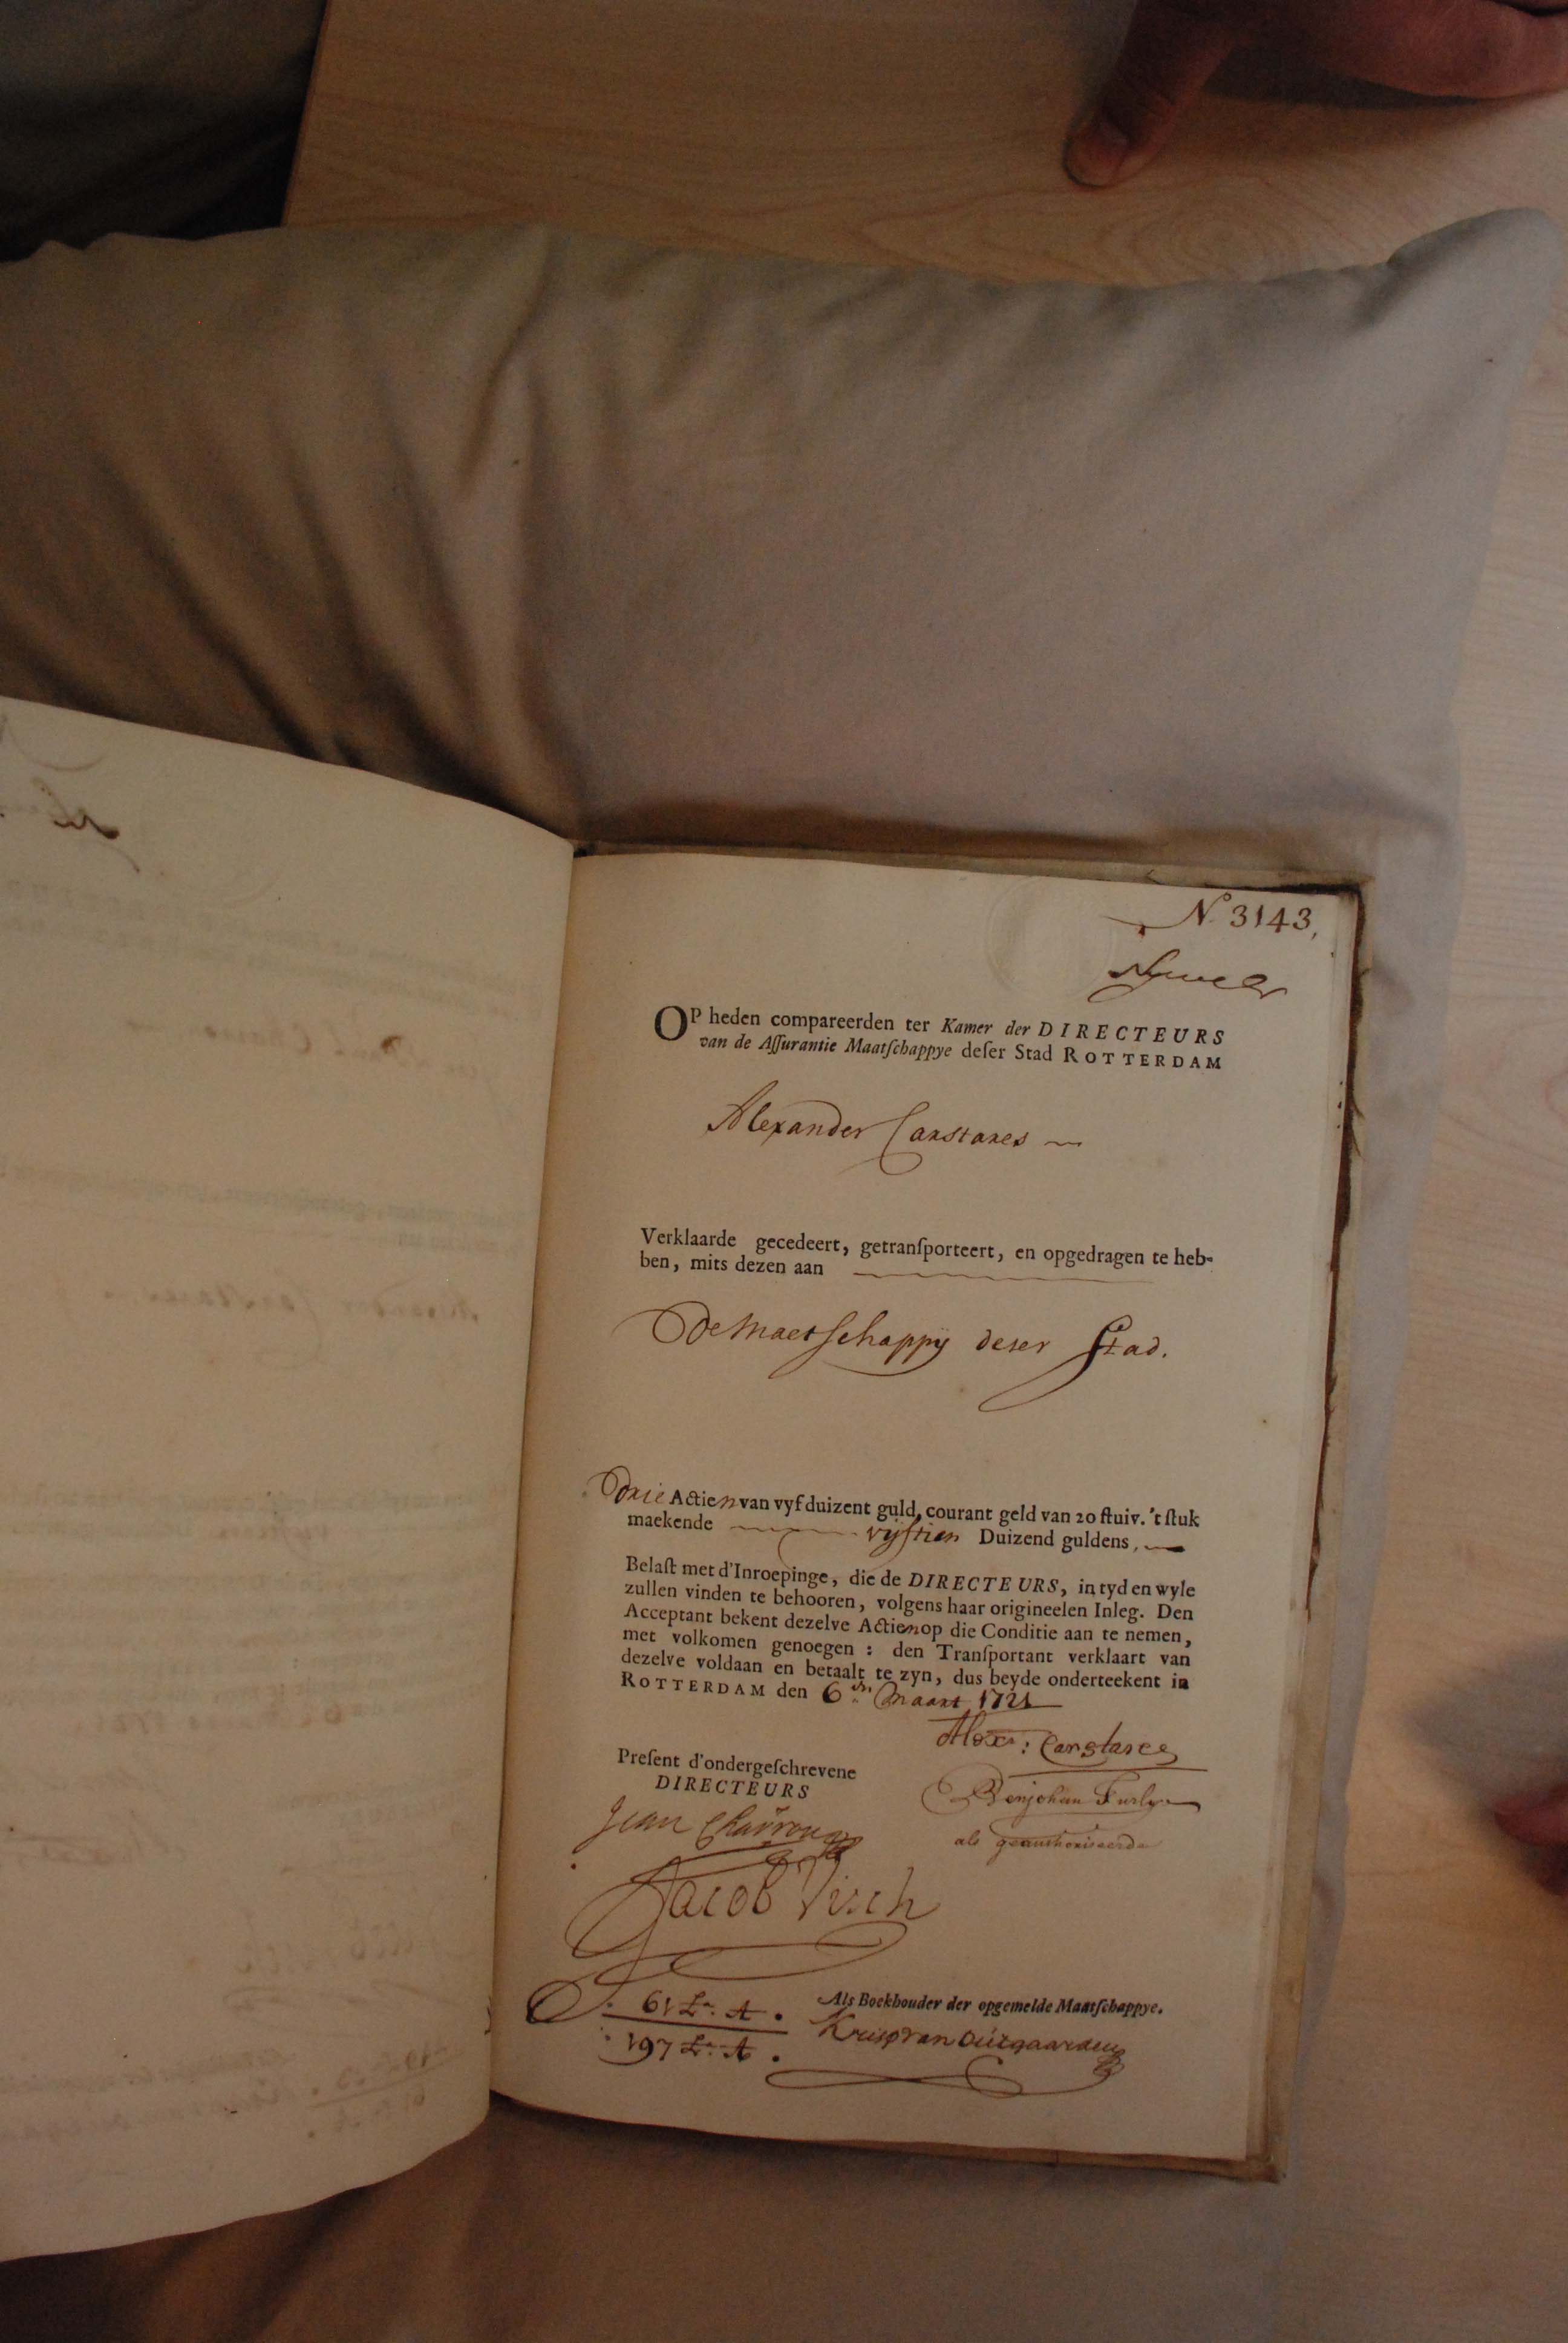 No 3143,
OP heden compareerden ter Kamer der DIRECTEURS
van de Aſſurantie Maatſchappye deſer Stad ROTTERDAM
Alexander Carstares
Verklaarde gecedeert, getranſporteert, en opgedragen te heb-
ben, mits dezen aan
De Maetschappÿ deser Stad.
Drie Actien van vyf duizent guld, courant geld van 20 ſtuiv. 't ſtuk
maekende vijftien Duizend guldens,
Belaſt met d'Inroepinge, die de DIRECTEURS, in tyd en wyle
zullen vinden te behooren, volgens haar origineelen Inleg. Den
Acceptant bekent dezelve Actien op die Conditie aan te nemen,
met volkomen genoegen : den Tranſportant verklaart van
dezelve voldaan en betaalt te zyn, dus beyde onderteekent in
ROTTERDAM den 6en Maart 1721
Alexr: Carstares
Preſent d'ondergeſchrevene
DIRECTEURS
Benjohan Furly
als geauthoriseerde
Jean
Jacob Visch
61 Lr. A.
197 Lr. A.
Als Boekhouder der opgemelde Maatſchappye.